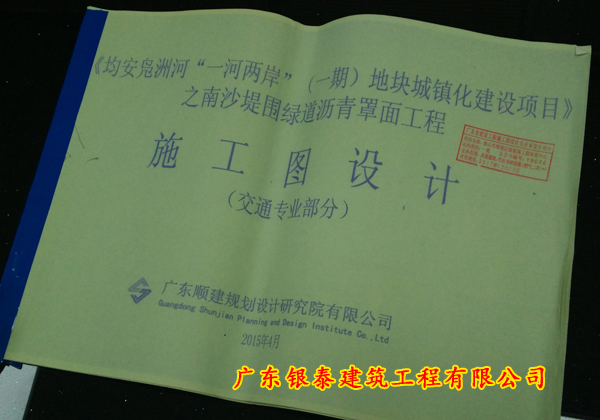 《均安凫洲河“一河两岸”（一期）地块城镇化建设项目》
之南沙堤围绿道沥青罩面工程
施工图设计
（交通专业部分）
广东顺建规划设计研究院有限公司
Guangdong Shunjian Planning and Design Institute Co.,Ltd
2015年4月
广东银泰建筑工程有限公司